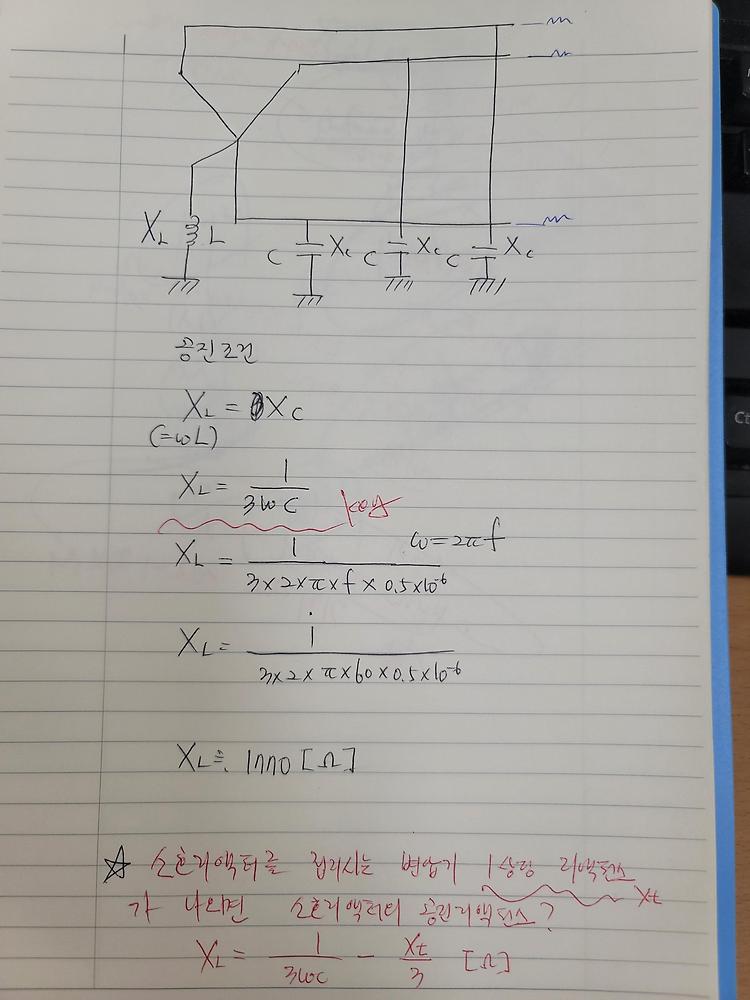 X_L L C X_C C X_C C X_C
공진조건
X_L = X_C
(=ωL)
X_L = 1/3ωC key
X_L = 1/(3×2×π×f×0.5×10^-6) ω=2πf
X_L = 1/(3×2×π×60×0.5×10^-6)
X_L ≒ 1770 [Ω]
☆ 소호리액터를 접리시는 변압기 1상당 리액턴스 X_t
가 나오면 소호리액터의 공진리액턴스?
X_L = 1/3ωC - X_t/3 [Ω]
Ct